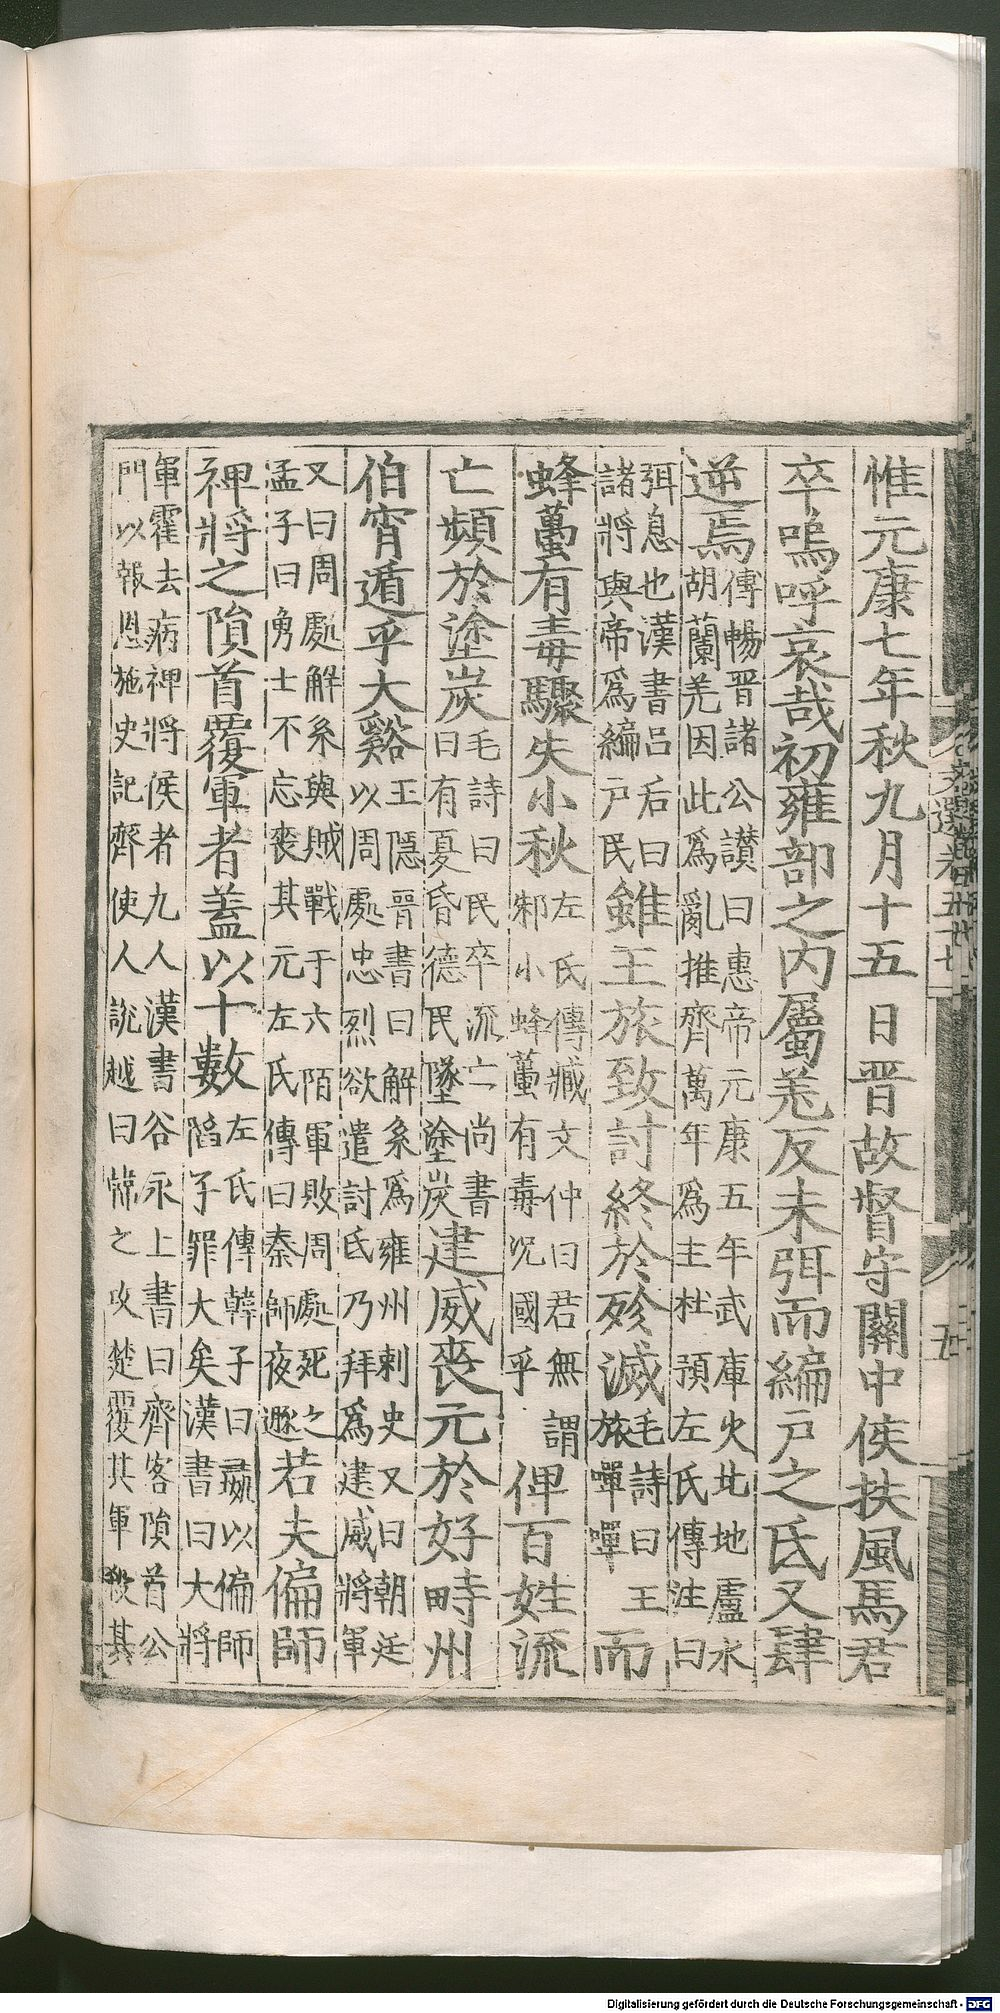 惟元康七年秋九月十五日晋故督守關中侯扶風馬君
卒嗚呼哀哉初雍部之内屬羌反未弭而編戸之氐又肆
逆焉傳暢晋諸公讃曰惠帝元康五年武庫火北地盧水
胡蘭羌因此為亂推齊萬年為主杜預左氏傳注曰
弭息也漢書吕后曰
諸將與帝為編戸民雖王旅致討終於殄滅毛詩曰王
旅嘽嘽而
蜂蠆有毒驟失小秋左氏傳臧文仲曰君無謂
邾小蜂蠆有毒况國乎俾百姓流
亡頻於塗炭毛詩曰民卒流亡尚書
曰有夏昏德民墜塗炭建威喪元於好畤州
伯宵遁乎大谿王隱晋書曰解系為雍州刺史又曰朝廷
以周處忠烈欲遣討氐乃拜為建威將軍
又曰周處解系與賊戰于六陌軍敗周處死之
孟子曰勇士不忘喪其元左氏傳曰秦師夜遯若夫偏師
裨將之隕首覆軍者蓋以十數左氏傳韓子曰彘以偏師
䧟子罪大矣漢書曰大將
軍霍去病裨將侯者九人漢書谷永上書曰齊客隕首公
門以報恩施史記齊使人説越曰韓之攻楚覆其軍殺其
文選卷五十七
五
Digitalisierung gefördert durch die Deutsche Forschungsgemeinschaft - DFG